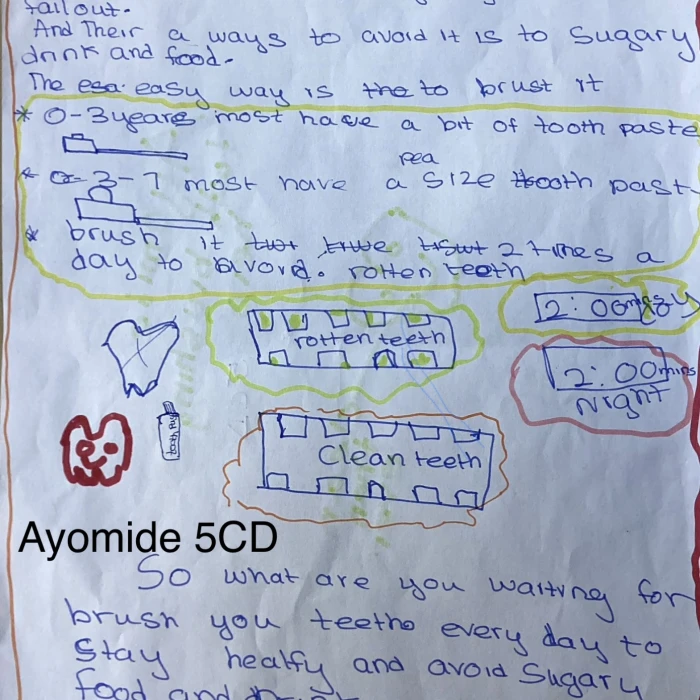 fall out.
And Their a ways to avoid it is to Sugary
drink and food.
The esa easy way is the to brust it
* 0-3 years most have a bit of tooth paste
pea
* 3-7 most have a size tooth past
* brush it 2 times a
day to avord. rotten teeth
2:00mins
rotten teeth
2:00mins
Night
Clean teeth
Ayomide 5CD
So what are you waiting for
brush you teeth every day to
Stay healfy and avoid Sugary
food and